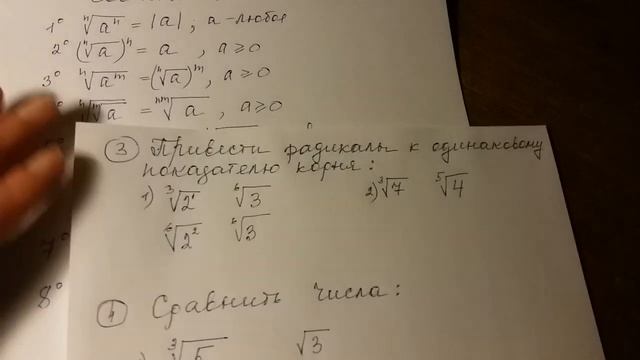 1° ⁿ√aⁿ = |a| ; a - любое
2° (ⁿ√a)ⁿ = a , a ≥ 0
3° ⁿ√aᵐ = (ⁿ√a)ᵐ, a ≥ 0
ⁿ√ᵐ√a = ⁿᵐ√a , a ≥ 0
③ Привести радикалы к одинаковому
показателю корня :
1) ³√2¹ ⁶√3 2) ³√7 ⁵√4
⁶√2² ⁶√3
7°
8°
④ Сравнить числа :
³√5 √3